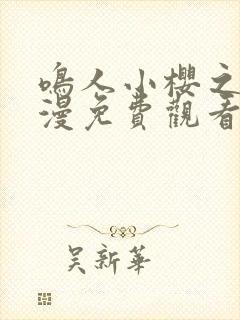 鳴人小櫻之
漫免費觀看
吴新華